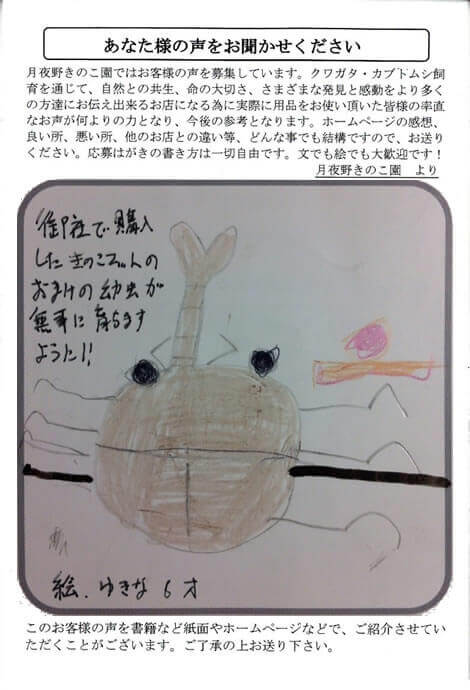 あなた様の声をお聞かせください
月夜野きのこ園ではお客様の声を募集しています。クワガタ・カブトムシ飼
育を通じて、自然との共生、命の大切さ、さまざまな発見と感動をより多く
の方達にお伝え出来るお店になる為に実際に用品をお使い頂いた皆様の率直
なお声が何よりの力となり、今後の参考となります。ホームページの感想、
良い所、悪い所、他のお店との違い等、どんな事でも結構ですので、お送り
ください。応募はがきの書き方は一切自由です。文でも絵でも大歓迎です！
月夜野きのこ園　より
御社で購入
した
おまけの幼虫が
無事に育ちます
ように!!
絵.ゆきな 6才
このお客様の声を書籍など紙面やホームページなどで、ご紹介させてい
ただくことがございます。ご了承の上お送り下さい。